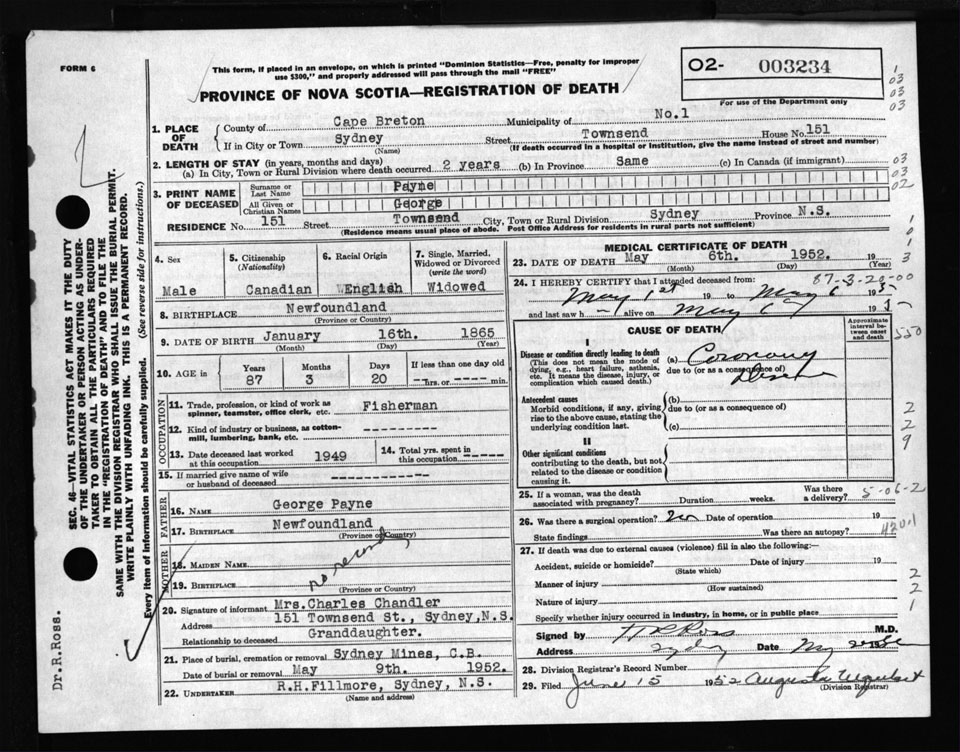 FORM 6
This form, if placed in an envelope, on which is printed "Dominion Statistics—Free, penalty for improper
use $300," and properly addressed will pass through the mail "FREE"
O2- 003234
For use of the Department only
PROVINCE OF NOVA SCOTIA—REGISTRATION OF DEATH
1. PLACE OF DEATH
County of Cape Breton Municipality of No.1
If in City or Town Sydney Street Townsend House No. 151
(Name) (If death occurred in a hospital or institution, give the name instead of street and number)
2. LENGTH OF STAY (in years, months and days)
(a) In City, Town or Rural Division where death occurred 2 years (b) In Province Same (c) In Canada (if immigrant)
3. PRINT NAME OF DECEASED
Surname or Last Name Payne
All Given or Christian Names George
RESIDENCE No. 151 Street Townsend City, Town or Rural Division Sydney Province N.S.
(Residence means usual place of abode. Post Office Address for residents in rural parts not sufficient)
4. Sex
Male
5. Citizenship
(Nationality)
Canadian
6. Racial Origin
English
7. Single, Married,
Widowed or Divorced
(write the word)
Widowed
8. BIRTHPLACE Newfoundland
(Province or Country)
9. DATE OF BIRTH January 16th. 1865
(Month) (Day) (Year)
10. AGE in
Years Months Days If less than one day old
87 3 20 hrs. or min.
OCCUPATION
11. Trade, profession, or kind of work as
spinner, teamster, office clerk, etc. Fisherman
12. Kind of industry or business, as cotton-
mill, lumbering, bank, etc.
13. Date deceased last worked
at this occupation 1949
14. Total yrs. spent in
this occupation
15. If married give name of wife
or husband of deceased
FATHER
16. Name George Payne
17. Birthplace Newfoundland
(Province or Country)
MOTHER
18. Maiden Name
19. Birthplace
no record
(Province or Country)
20. Signature of informant Mrs.Charles Chandler
Address 151 Townsend St., Sydney,N.S.
Relationship to deceased Granddaughter.
21. Place of burial, cremation or removal Sydney Mines, C.B.
Date of burial or removal May 9th. 1952.
22. Undertaker R.H.Fillmore, Sydney, N.S.
(Name and address)
MEDICAL CERTIFICATE OF DEATH
23. DATE OF DEATH May 6th. 1952.
(Month) (Day) (Year)
87-3-20-00
24. I HEREBY CERTIFY that I attended deceased from:
May 1st 19 to May 6 19
and last saw h alive on May 19
CAUSE OF DEATH
Approximate interval between onset and death
I
Disease or condition directly leading to death
(This does not mean the mode of
dying, e.g., heart failure, asthenia,
etc. It means the disease, injury, or
complication which caused death.)
(a) Coronary
due to (or as a consequence of)
Antecedent causes
Morbid conditions, if any, giving
rise to the above cause, stating the
underlying condition last.
(b)
due to (or as a consequence of)
(c)
II
Other significant conditions
contributing to the death, but not
related to the disease or condition
causing it.
25. If a woman, was the death
associated with pregnancy? Duration weeks. Was there
a delivery?
5-06-2
26. Was there a surgical operation? no Date of operation 19
State findings Was there an autopsy?
4201
27. If death was due to external causes (violence) fill in also the following:
Accident, suicide or homicide? Date of injury 19
(State which)
Manner of injury
(How sustained)
Nature of injury
Specify whether injury occurred in industry, in home, or in public place
Signed by Ross M.D.
Address Sydney Date May 19
28. Division Registrar's Record Number
29. Filed June 15 1952 Augusta
(Division Registrar)
SEC. 46—VITAL STATISTICS ACT MAKES IT THE DUTY
OF THE UNDERTAKER OR PERSON ACTING AS UNDER-
TAKER TO OBTAIN ALL THE PARTICULARS REQUIRED
IN THE "REGISTRATION OF DEATH" AND TO FILE THE
SAME WITH THE DIVISION REGISTRAR WHO SHALL ISSUE THE BURIAL PERMIT.
WRITE PLAINLY WITH UNFADING INK. THIS IS A PERMANENT RECORD.
Every item of information should be carefully supplied. (See reverse side for instructions.)
Dr.R.Ross.
1
03
03
03
03
03
02
1
0
1
3
550
2
2
9
2
2
1